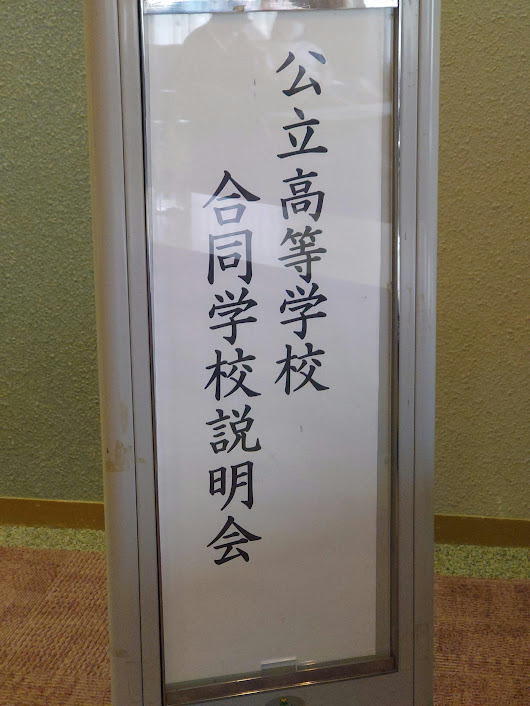 公立高等学校
合同学校説明会